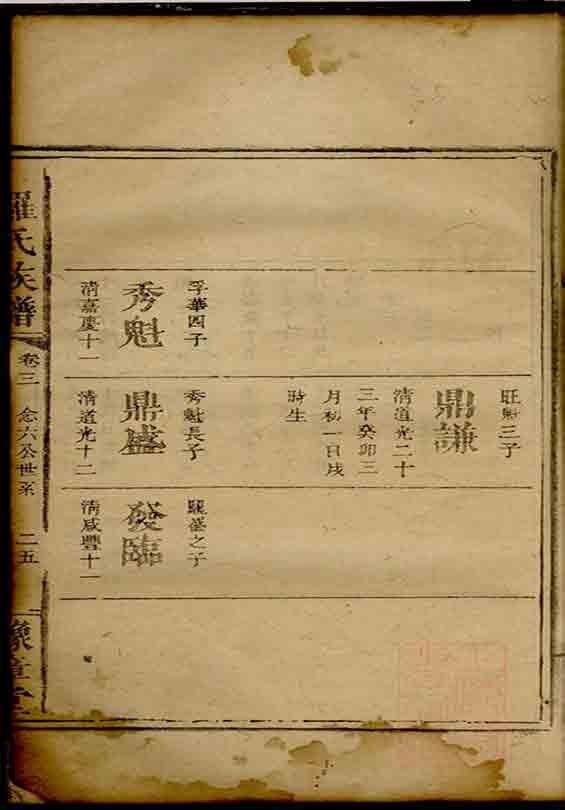 旺魁三子
鼎謙
清道光二十
三年癸卯三
月初一日戌
時生
孚華四子
秀魁
清嘉慶十一
秀魁長子
鼎盛
清道光十二
鼎盛之子
發臨
清咸豐十一
羅氏族譜
卷三
念六公世系
二五
豫章堂